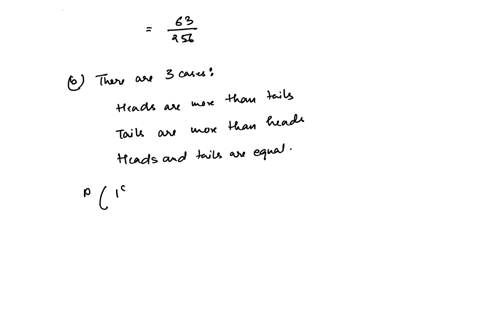 = 63/256
(b) There are 3 cases:
Heads are more than tails
Tails are more than heads
Heads and tails are equal.
P (